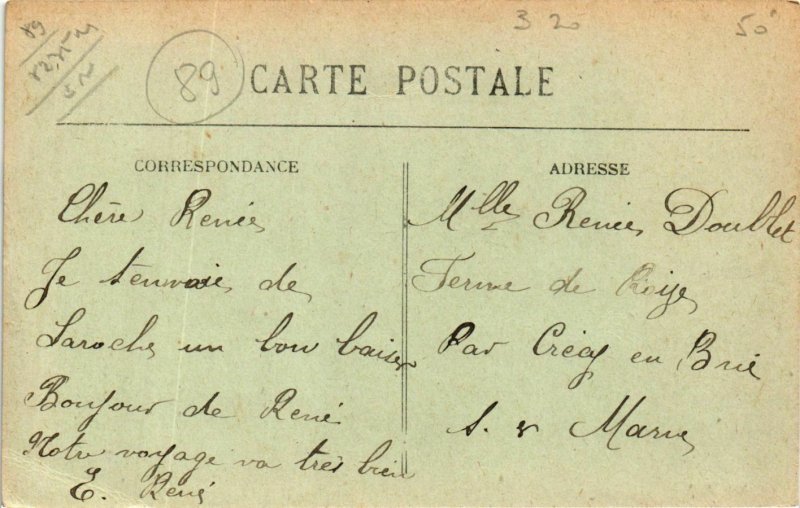 3 20
50
89
89
CARTE POSTALE
CORRESPONDANCE
Chère Renée
Je t'envoie de
Laroche un bon baiser
Bonjour de René
Notre voyage va très bien
E. René
ADRESSE
Mlle Renée Doublet
Ferme de
Par Crécy en Brie
S. & Marne